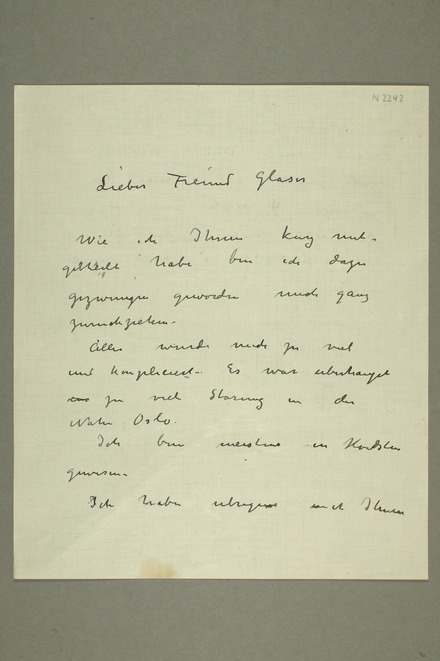 N 2242
Lieber Freund Glaser
Wie ich Ihnen kurz mit-
getheilt habe bin ich dazu
gezwungen geworden mich ganz
zurückziehen.
Alles wurde mich zu viel
und kompliciert. Es war überhaupt
zu viel Störung in der
Nähe Oslo.
Ich bin meistens in Hvidsten
gewesen.
Ich habe übrigens Ihnen